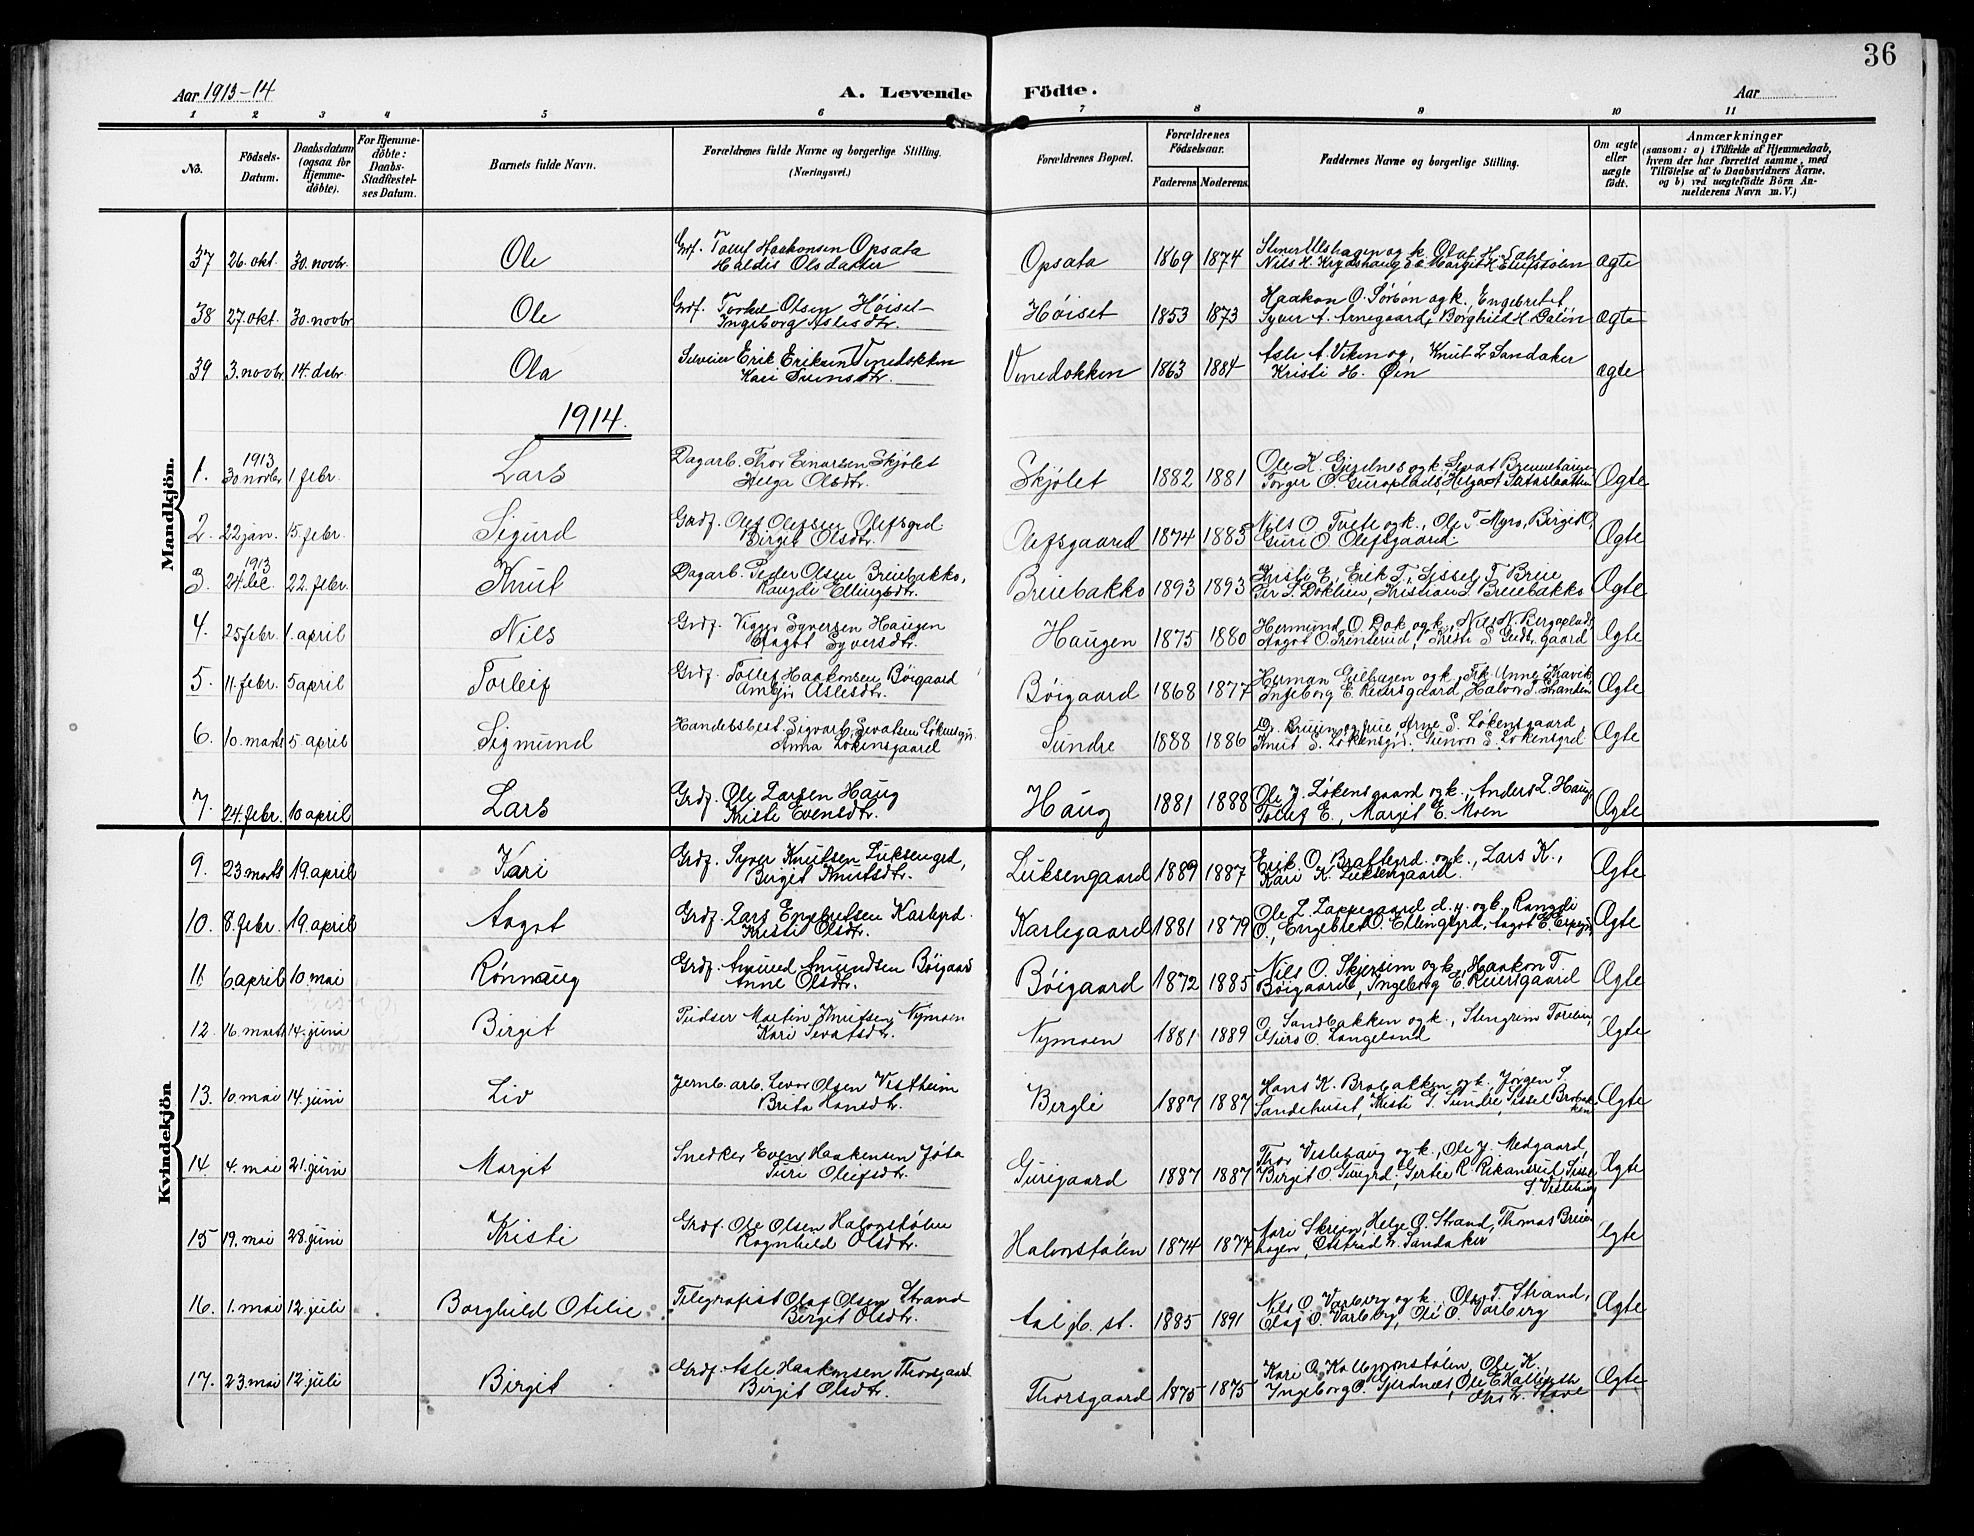 36
Aar 1913-14
A. Levende Födte.
Aar
1 2 3 4 5 6 7 8 9 10 11
No.
Födsels-Datum.
Daabsdatum (ogsaa for Hjemme-döbte).
For Hjemme-döbte: Daabs-Stadfæstel-ses Datum.
Barnets fulde Navn.
Forældrenes fulde Navne og borgerlige Stilling. (Næringsvei.)
Forældrenes Bopæl.
Forældrenes Födselsaar.
Faderens. Moderens.
Faddernes Navne og borgerlige Stilling.
Om ægte eller uægte födt.
Anmærkninger (saasom: a) i Tilfælde af Hjemmedaab, hvem der har forrettet samme, med Tilföielse af to Daabsvidners Navne, og b) ved uægtefödte Börn An-melderens Navn m. V.)
Mandkjön.
37 26. okt. 30. novbr. Ole Grf. Tollef Haakonsen Opsata Haldis Olsdatter Opsata 1869 1874 ægte
38 27. okt. 30. novbr Ole Grdf. Torkel Olsen Höiset Ingeborg Aslesdtr. Höiset 1853 1873 Haakon O. Sörbön og k., Engebret Syver A. Arnegaard, Borghild H. Dalen ægte
39 3. novbr 14. debr. Ola Erik Eriksen Vinedokken Kari Svensdtr. Vinedokken 1863 1884 Asle A. Viken og, Knut L. Sandaker Kristi H. Öen ægte
1914.
1. 1913 30 novbr 1 febr. Lars Dagarb. Thor Einarsen Skjölet Helga Olsdtr. Skjölet 1882 1881 Ole K. Gjerdnes og k., Sevat Torger O. Guroplads, Helga Ægte
2. 22 jan. 15 febr. Sigurd Grdf. Olef Olefsen Olefsgrd. Birgit Olsdtr. Olefsgaard 1874 1883 Nils O. Tveto og k., Ole T. Myro, Birgit O, Guri O. Olefsgaard. Ægte
3. 1913 24. 22. febr. Knut Dagarb. Peder Olsen Breiebakko, Rangdi Ellingsdtr. Breiebakko 1893 1893 Kristi E., Erik T., Sissel T. Breie Per S. Doklien, Kristian S. Breiebakko Ægte
4. 25 febr. 1. april Nils Grdf. Syversen Haugen Aagot Syversdtr. Haugen 1875 1880 Hermund O. Dok og k., Nils N. Bergoplads Aagot O. Trinterud, Kristi S. Gudb.gaard Ægte
5. 11. febr. 5 april Torleif Grdf. Tollef Haakonsen Böigaard Aslesdtr. Böigaard 1868 1877 Herman Gilhagen og k., Frk. Unne Ingeborg E. Reiersgaard, Halvor S. Stranden Ægte
6. 10. marts 5 april Sigmund Handelsbest. Sigvart Sevatsen Lökensgrd. Anna Lökensgaard Sundre 1888 1886 Dr. og frue, Arne S. Lökensgaard, Knut S. Lökensgrd. Gunvor S. Lökensgrd Ægte
7. 24. febr. 10 april Lars Grdf. Ole Larsen Haug Kristi Evensdtr. Haug 1881 1888 Ole J. Lökensgaard og k., Anders L. Haug, Tollef E., Margit E. Moen Ægte
Kvindekjön
9. 23 marts 19. april Kari Grdf. Syver Knutsen Luksengrd, Birgit Knutsdtr. Luksengaard 1889 1887 Erik O. Brattegrd. og k., Lars K., Kari K. Luksengaard. Ægte
10. 8. febr. 19. april Aagot Grdf. Lars Engebretsen Karlegrd. Kristi Olsdtr. Karlegaard 1881 1879 Ole L. Lappegaard d. y. og k. Rangdi O., Engebret O. Ellingsgrd, Aagot E. Ægte
11 6. april 10 mai Rönnaug Grdf. Amund Amundsen Böigaard Anne Olsdtr. Böigaard 1872 1885 Nils O. Skjersim og k., Haakon T. Böigaard, Ingeborg E. Reiersgaard Ægte
12. 16. marts 14. juni Birgit Pudser Martin Knutsen Nymoen Kari Sevatsdtr. Nymoen 1881 1889 O. Sandbakken og k., Stengrim Guro O. Langeland Ægte
13. 10. mai 14. juni Liv Jernb. arb. Levor Olsen Vestheim Brita Hansdtr. Bergli 1887 1887 Hans K. Brobakken og k., Jörgen S. Sandehuset, Kristi G. Sundre, Sissel Brobakken Ægte
14. 4. mai 21. juni Margit Snedker Even Haakensen Jöta Turi Oleifsdtr. Gurigaard 1887 1887 Thor Veslehaug og k., Ole J. Medgaard, Birgit O. Gurigrd, Gertie R. Rikansrud, Sissel S. Veslehaug Ægte
15 19. mai 28. juni Kristi Grdf. Ole Olsen Halvorstölen Ragnhild Olsdtr. Halvorstölen 1874 1877 Kari Skreien, Helge O. Strand, Thomas Breiehagen, Sandaker Ægte
16. 1. mai 12. juli Borghild Otilie Telegrafist Olaf Olsen Strand Birgit Olsdtr. Aal jb. st. 1885 1891 Nils O. Varberg og k., Olav T. Strand, Olaf O. Varberg, Ole O. Varberg Ægte
17. 23. mai 12. juli Birgit Grdf. Asle Haakonsen Thorsgaard Birgit Olsdtr. Thorsgaard 1875 1875 Kari O. Ole K. Ingeborg O. Gjerdnes, Ole E. Ægte